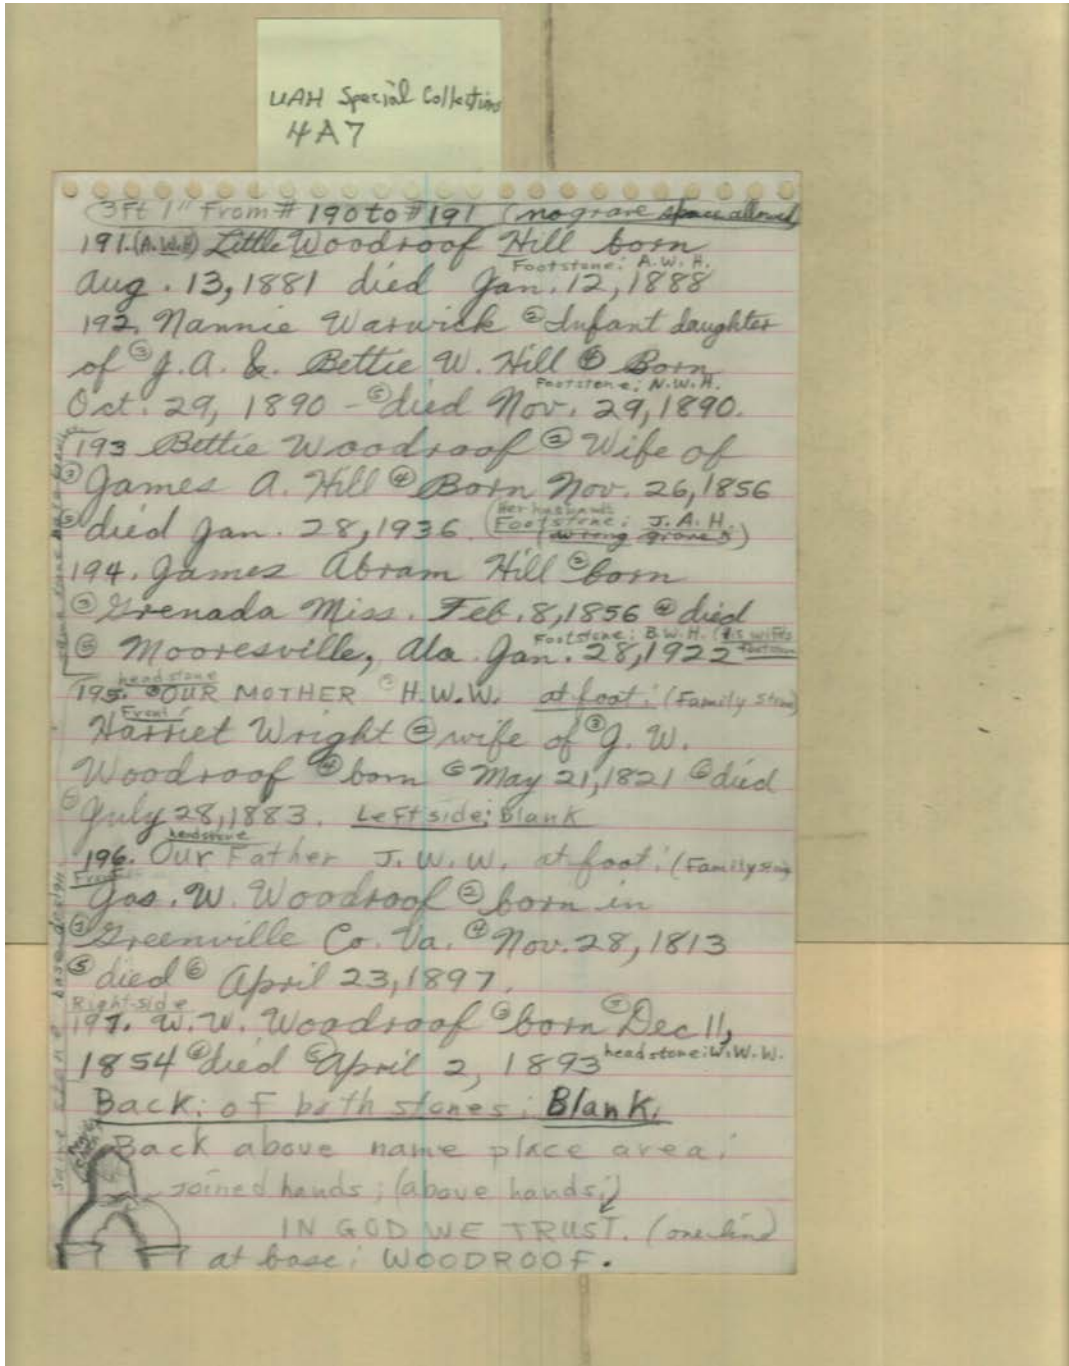 UAH Special Collections
4A7
(3Ft 1" From # 190 to # 191 (no grave space allowed)
191. (A.W.H) Little Woodroof Hill born
Footstone: A.W.H.
Aug. 13, 1881 died Jan. 12, 1888
192. Nannie Warwick ② Infant daughter
of ③ J.A. & Bettie W. Hill ④ Born
Footstone: N.W.H.
Oct. 29, 1890 - ⑤ died Nov. 29, 1890.
193 Bettie Woodroof ② Wife of
③ James A. Hill ④ Born Nov. 26, 1856
Her husbands
⑤ died Jan. 28, 1936. (Footstone: J.A.H.
(wrong grave)
194. James Abram Hill ② born
③ Grenada Miss. Feb. 8, 1856 ④ died
Footstone: B.W.H. (his wife's
footstone
⑤ Mooresville, Ala. Jan. 28, 1922
headstone
195. OUR MOTHER H.W.W. at foot: (Family stone)
Front:
Harriet Wright ② wife of ③ J. W.
Woodroof ④ born ⑤ May 21, 1821 ⑥ died
July 28, 1883. Left side: Blank
headstone
196. Our Father J.W.W. at foot: (Family stone
Front:
Jas. W. Woodroof ② born in
③ Greenville Co. Va. ④ Nov. 28, 1813
⑤ died ⑥ April 23, 1897.
Right-side
197. W. W. Woodroof ② born ③ Dec 11,
1854 ④ died ⑤ April 2, 1893 headstone: W.W.W.
Back: of both stones: Blank.
Back above name place area:
Joined hands; (above hands;)
IN GOD WE TRUST. (one line)
at base: WOODROOF.
same stone base design